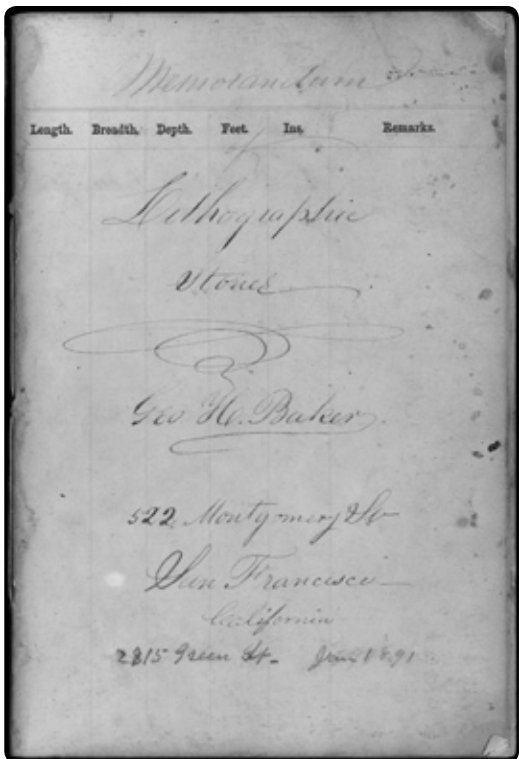 Memorandum
Length. Breadth. Depth. Feet. Ins. Remarks.
Lithographic
Stones
Geo. H. Baker
522 Montgomery St
San Francisco
California
2815 Green St. 1891